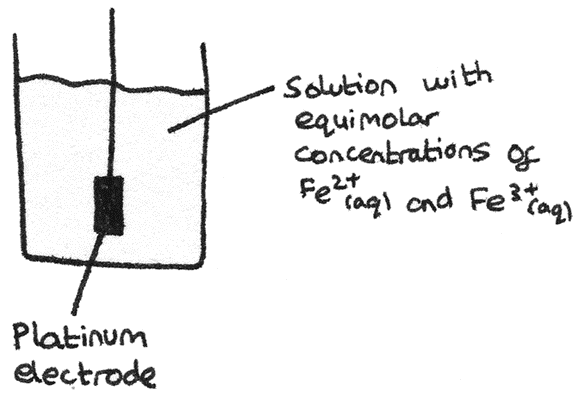 Solution with
equimolar
concentrations of
Fe²⁺(aq) and Fe³⁺(aq)
Platinum
electrode